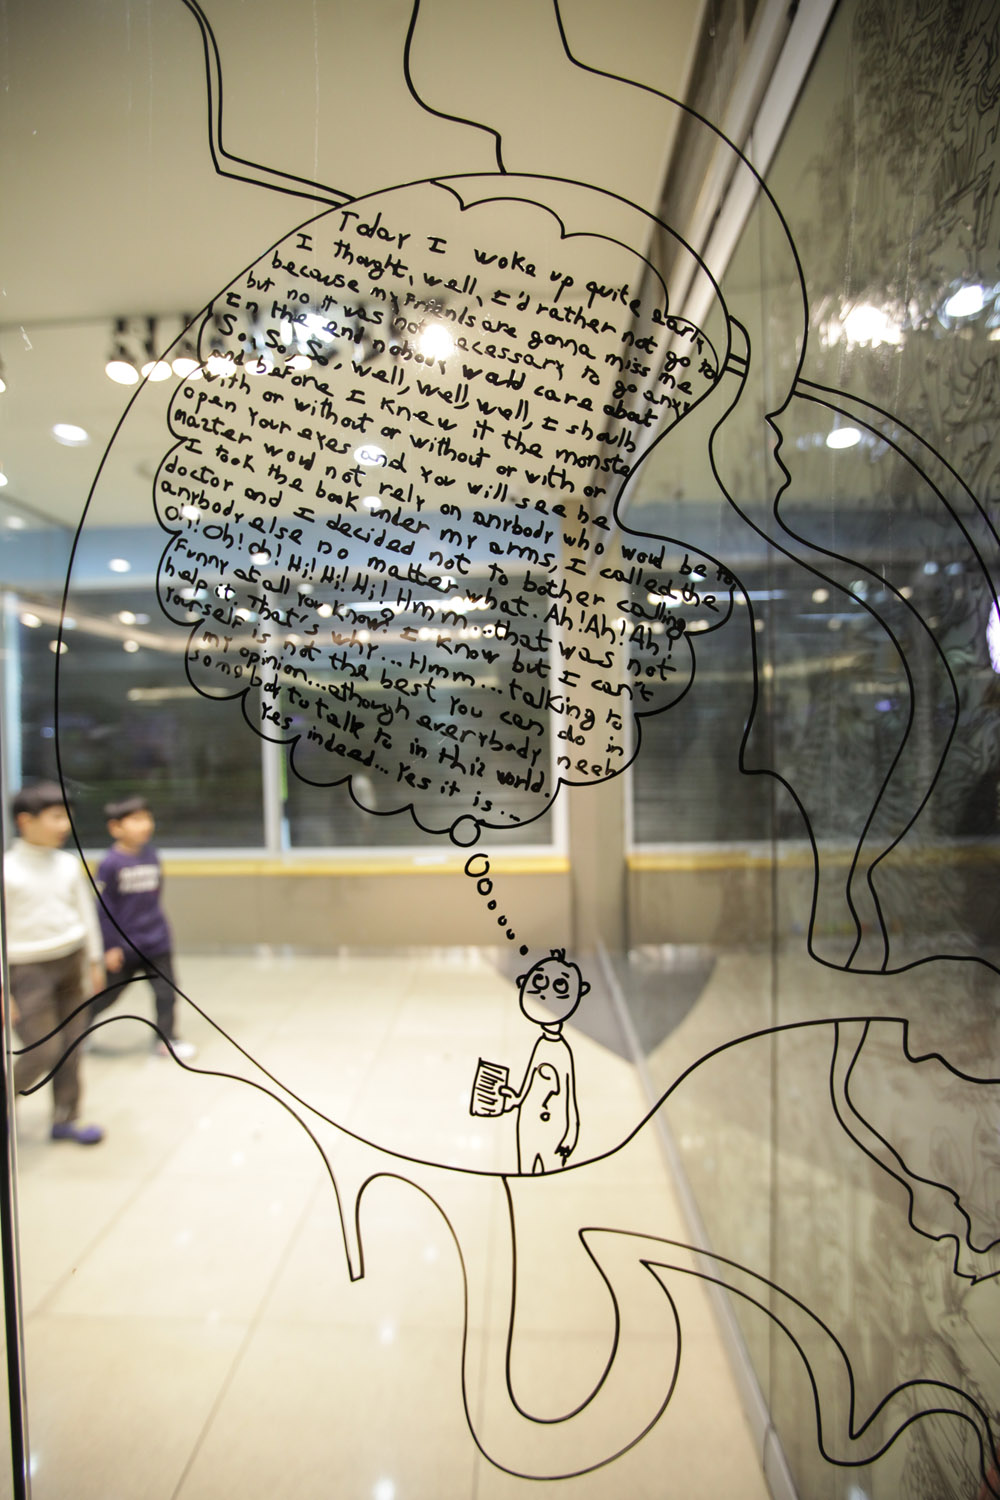 Today I woke up quite early
I thought, well, I'd rather not go to
because my friends are gonna miss me
but no it was not necessary to go
In the end nobody would care about
So, So, So, well, well, well, I should
and before I knew it the monste
with or without or without or with or
open your eyes and you will see he
master woud not rely on anybody who woud be to
I took the book under my arms, I called the
doctor and I decided not to bother calling
anybody else no matter what. Ah! Ah! Ah!
Oh! oh! Hi! Hi! Hi! Hmm...that was not
Funny at all you know? I know but I can't
help it That's why...Hmm...talking to
yourself is not the best you can do in
my opinion...although everybody need
somebody to talk to in this world.
Yes indeed... Yes it is...
?